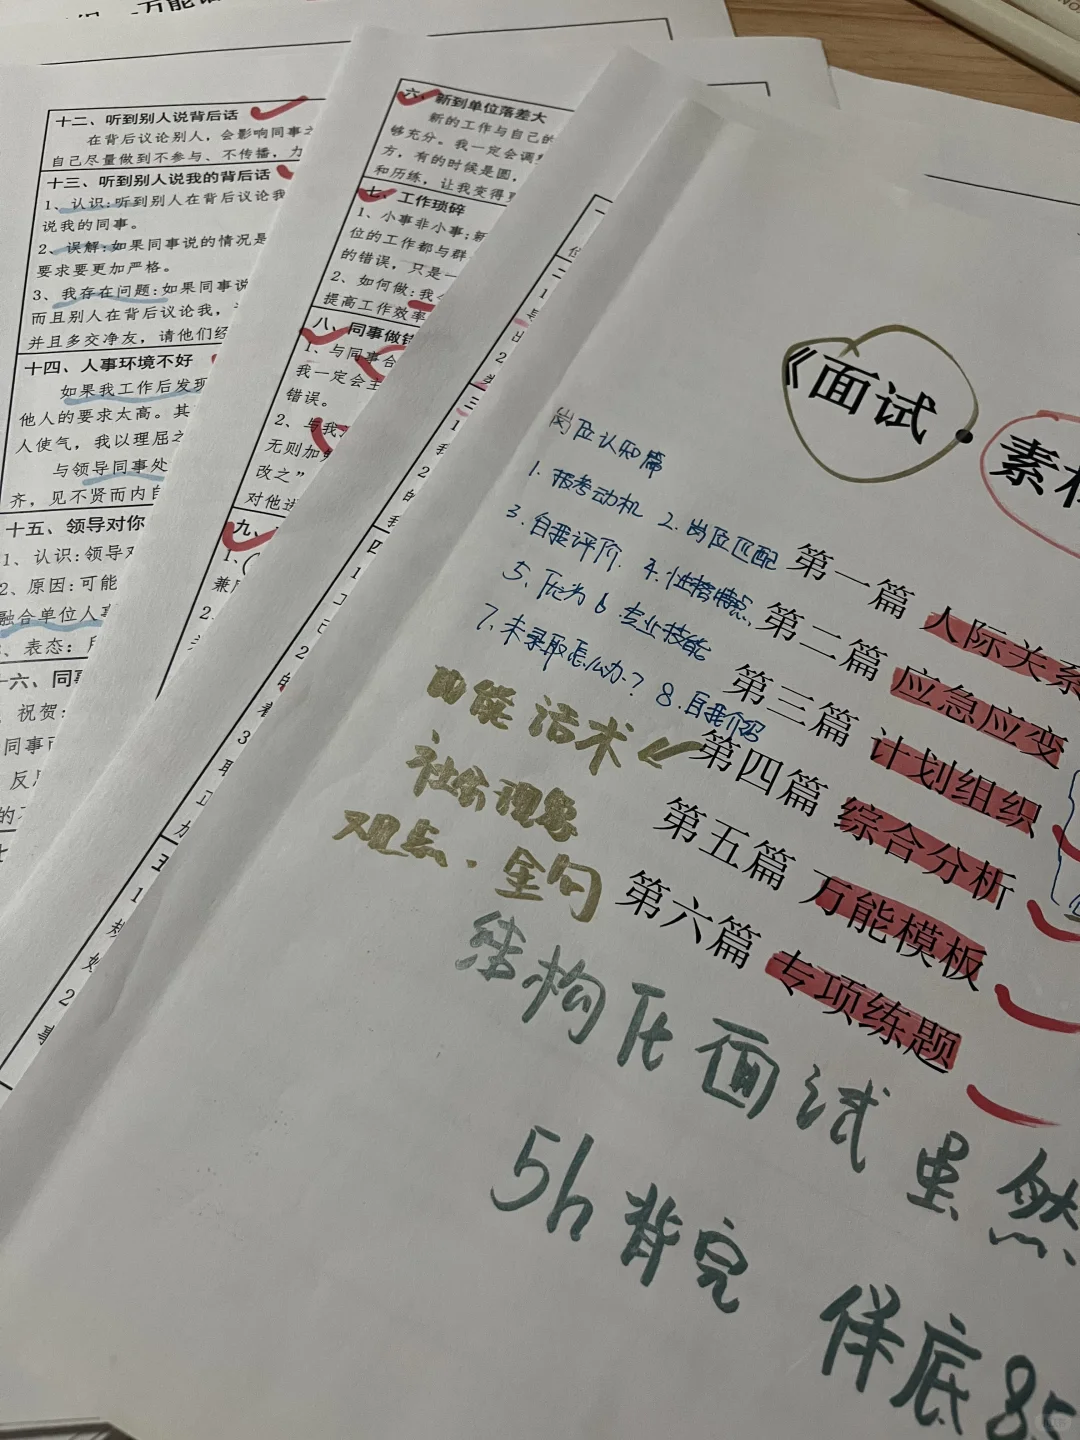 十二、听到别人说背后话
在背后议论别人，会影响同事之
自己尽量做到不参与、不传播，力
十三、听到别人说我的背后话
1、认识:听到别人在背后议论我
说我的同事。
2、误解:如果同事说的情况是
要求要更加严格。
3、我存在问题:如果同事说
而且别人在背后议论我，
并且多交净友，请他们经
十四、人事环境不好
如果我工作后发现
他人的要求太高。其
人使气，我以理屈之
与领导同事处
齐，见不贤而内自
十五、领导对你
1、认识:领导对
2、原因:可能
融合单位人事
、表态：
十六、同事
祝贺:
同事
六、新到单位落差大
新的工作与自己的
够充分。我一定会调
方，有的时候是圆，
和历练，让我变得更
七、工作琐碎
1、小事非小事;新
位的工作都与群
的错误，只是一
2、如何做:我
提高工作效率
八、同事做错
1、与同事合
我一定会主
错误。
2、与我
无则加勉
改之”
对他进
九、
《面试·素材
岗位认知篇
1. 报考动机 2. 岗位匹配
3. 自我评价. 4. 性格特点
5. 作为 6. 专业技能
7. 未录取怎么办? 8. 自我介绍
第一篇 人际关系
第二篇 应急应变
第三篇 计划组织
第四篇 综合分析
第五篇 万能模板
第六篇 专项练题
万能话术
社会现象
观点·金句
结构化面试虽然
5h背完 保底85